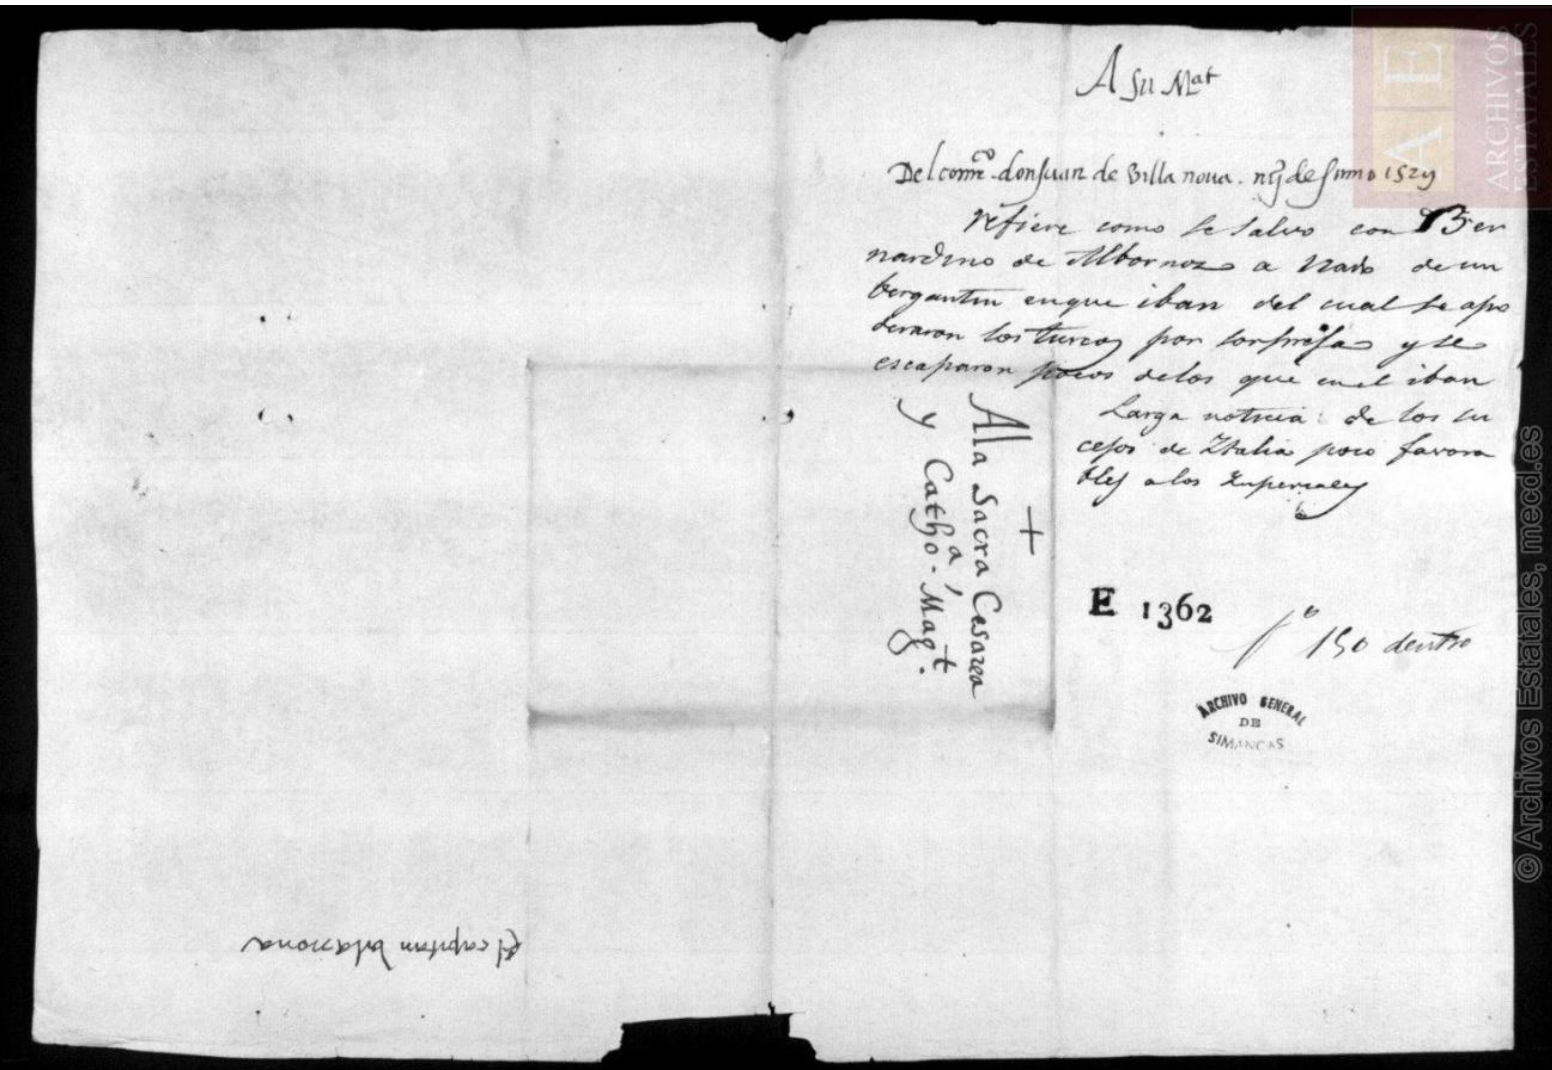 A Su Mat
Del comro. don Juan de Villa nova. iij de Junio 1529
refiere como se salvo con Ber
nardino de Albornoz a nado de un
bergantin enque iban del cual se apo
deraron los turcos por sorpresa y se
escaparon pocos delos que en el iban
Larga noticia de los su
cesos de Italia poco favora
bles a los Imperiales
+
Ala Sacra Cesarea
y Cathoa. Magt.
E 1362
fo 150 dentro
ARCHIVO GENERAL
DE
SIMANCAS
El capitan Villanova
A E
ARCHIVOS
ESTATALES
© Archivos Estatales, mecd.es